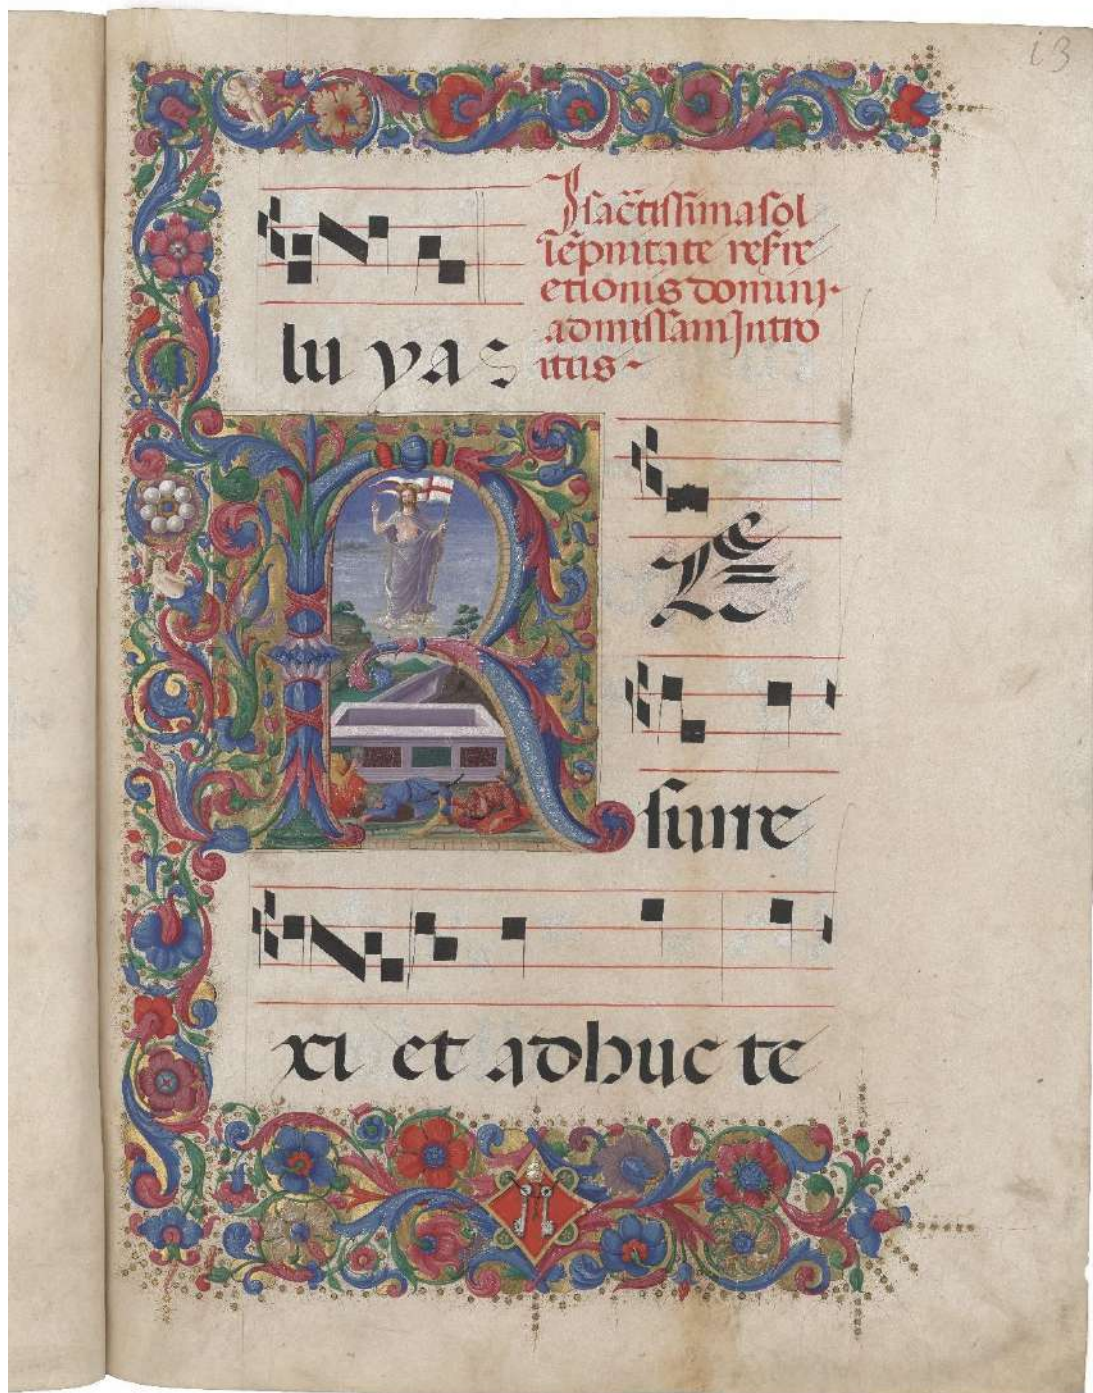 13
sac̄tissima sol
lēpnitate resure
ctionis domini·
ad missam Intro
itus·
lu ya
R
surre
xi et adhuc te